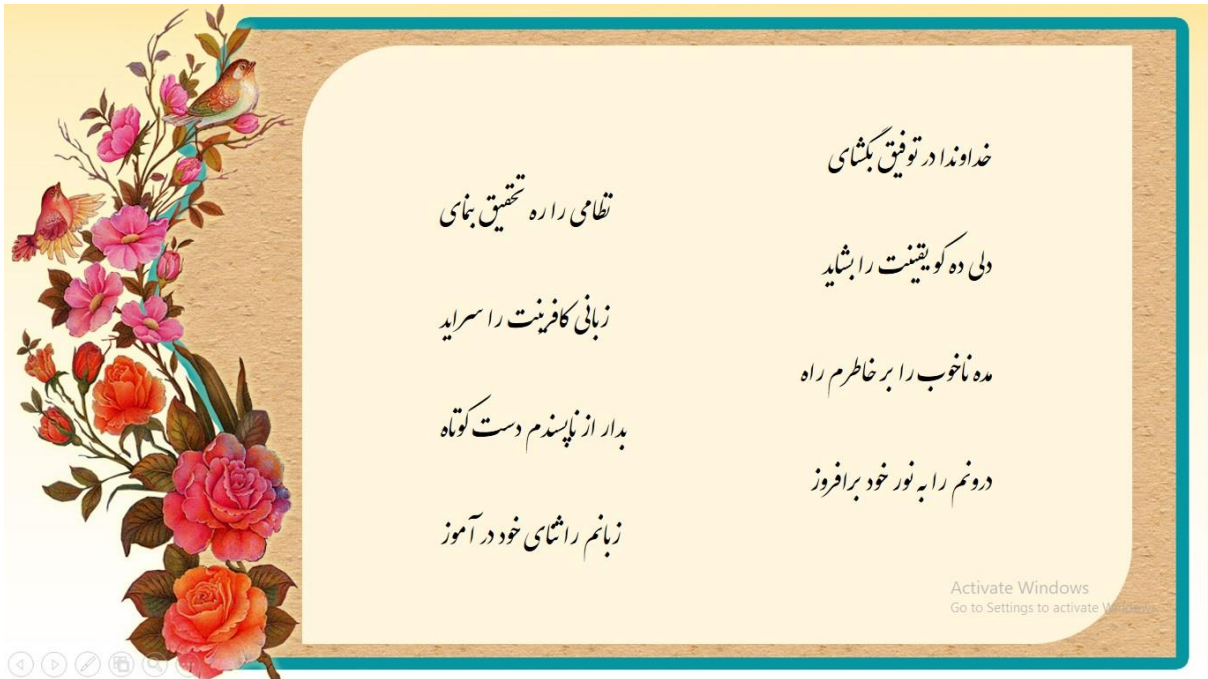 خداوندا در توفیق بگشای
نظامی را ره تحقیق بنمای
دلی ده کو یقینت را بشاید
زبانی کافرینت را سراید
مده ناخوب را بر خاطرم راه
بدار از ناپسندم دست کوتاه
درونم را به نور خود برافروز
زبانم را ثنای خود در آموز
Activate Windows
Go to Settings to activate Windows.